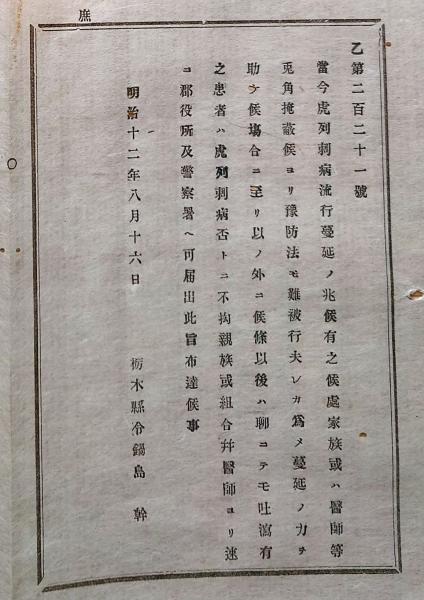 庶
乙第二百二十一號
當今虎列刺病流行蔓延ノ兆候有之候處家族或ハ醫師等
兎角掩蔽候ヨリ豫防法モ難被行夫レカ爲メ蔓延ノ力ヲ
助ケ候塲合ニ至リ以ノ外ニ候條以後ハ聊ニテモ吐瀉有
之患者ハ虎列刺病否トニ不拘親族或組合幷醫師ヨリ速
ニ郡役所及警察署ヘ可届出此旨布達候事
明治十二年八月十六日
栃木縣令鍋島 幹